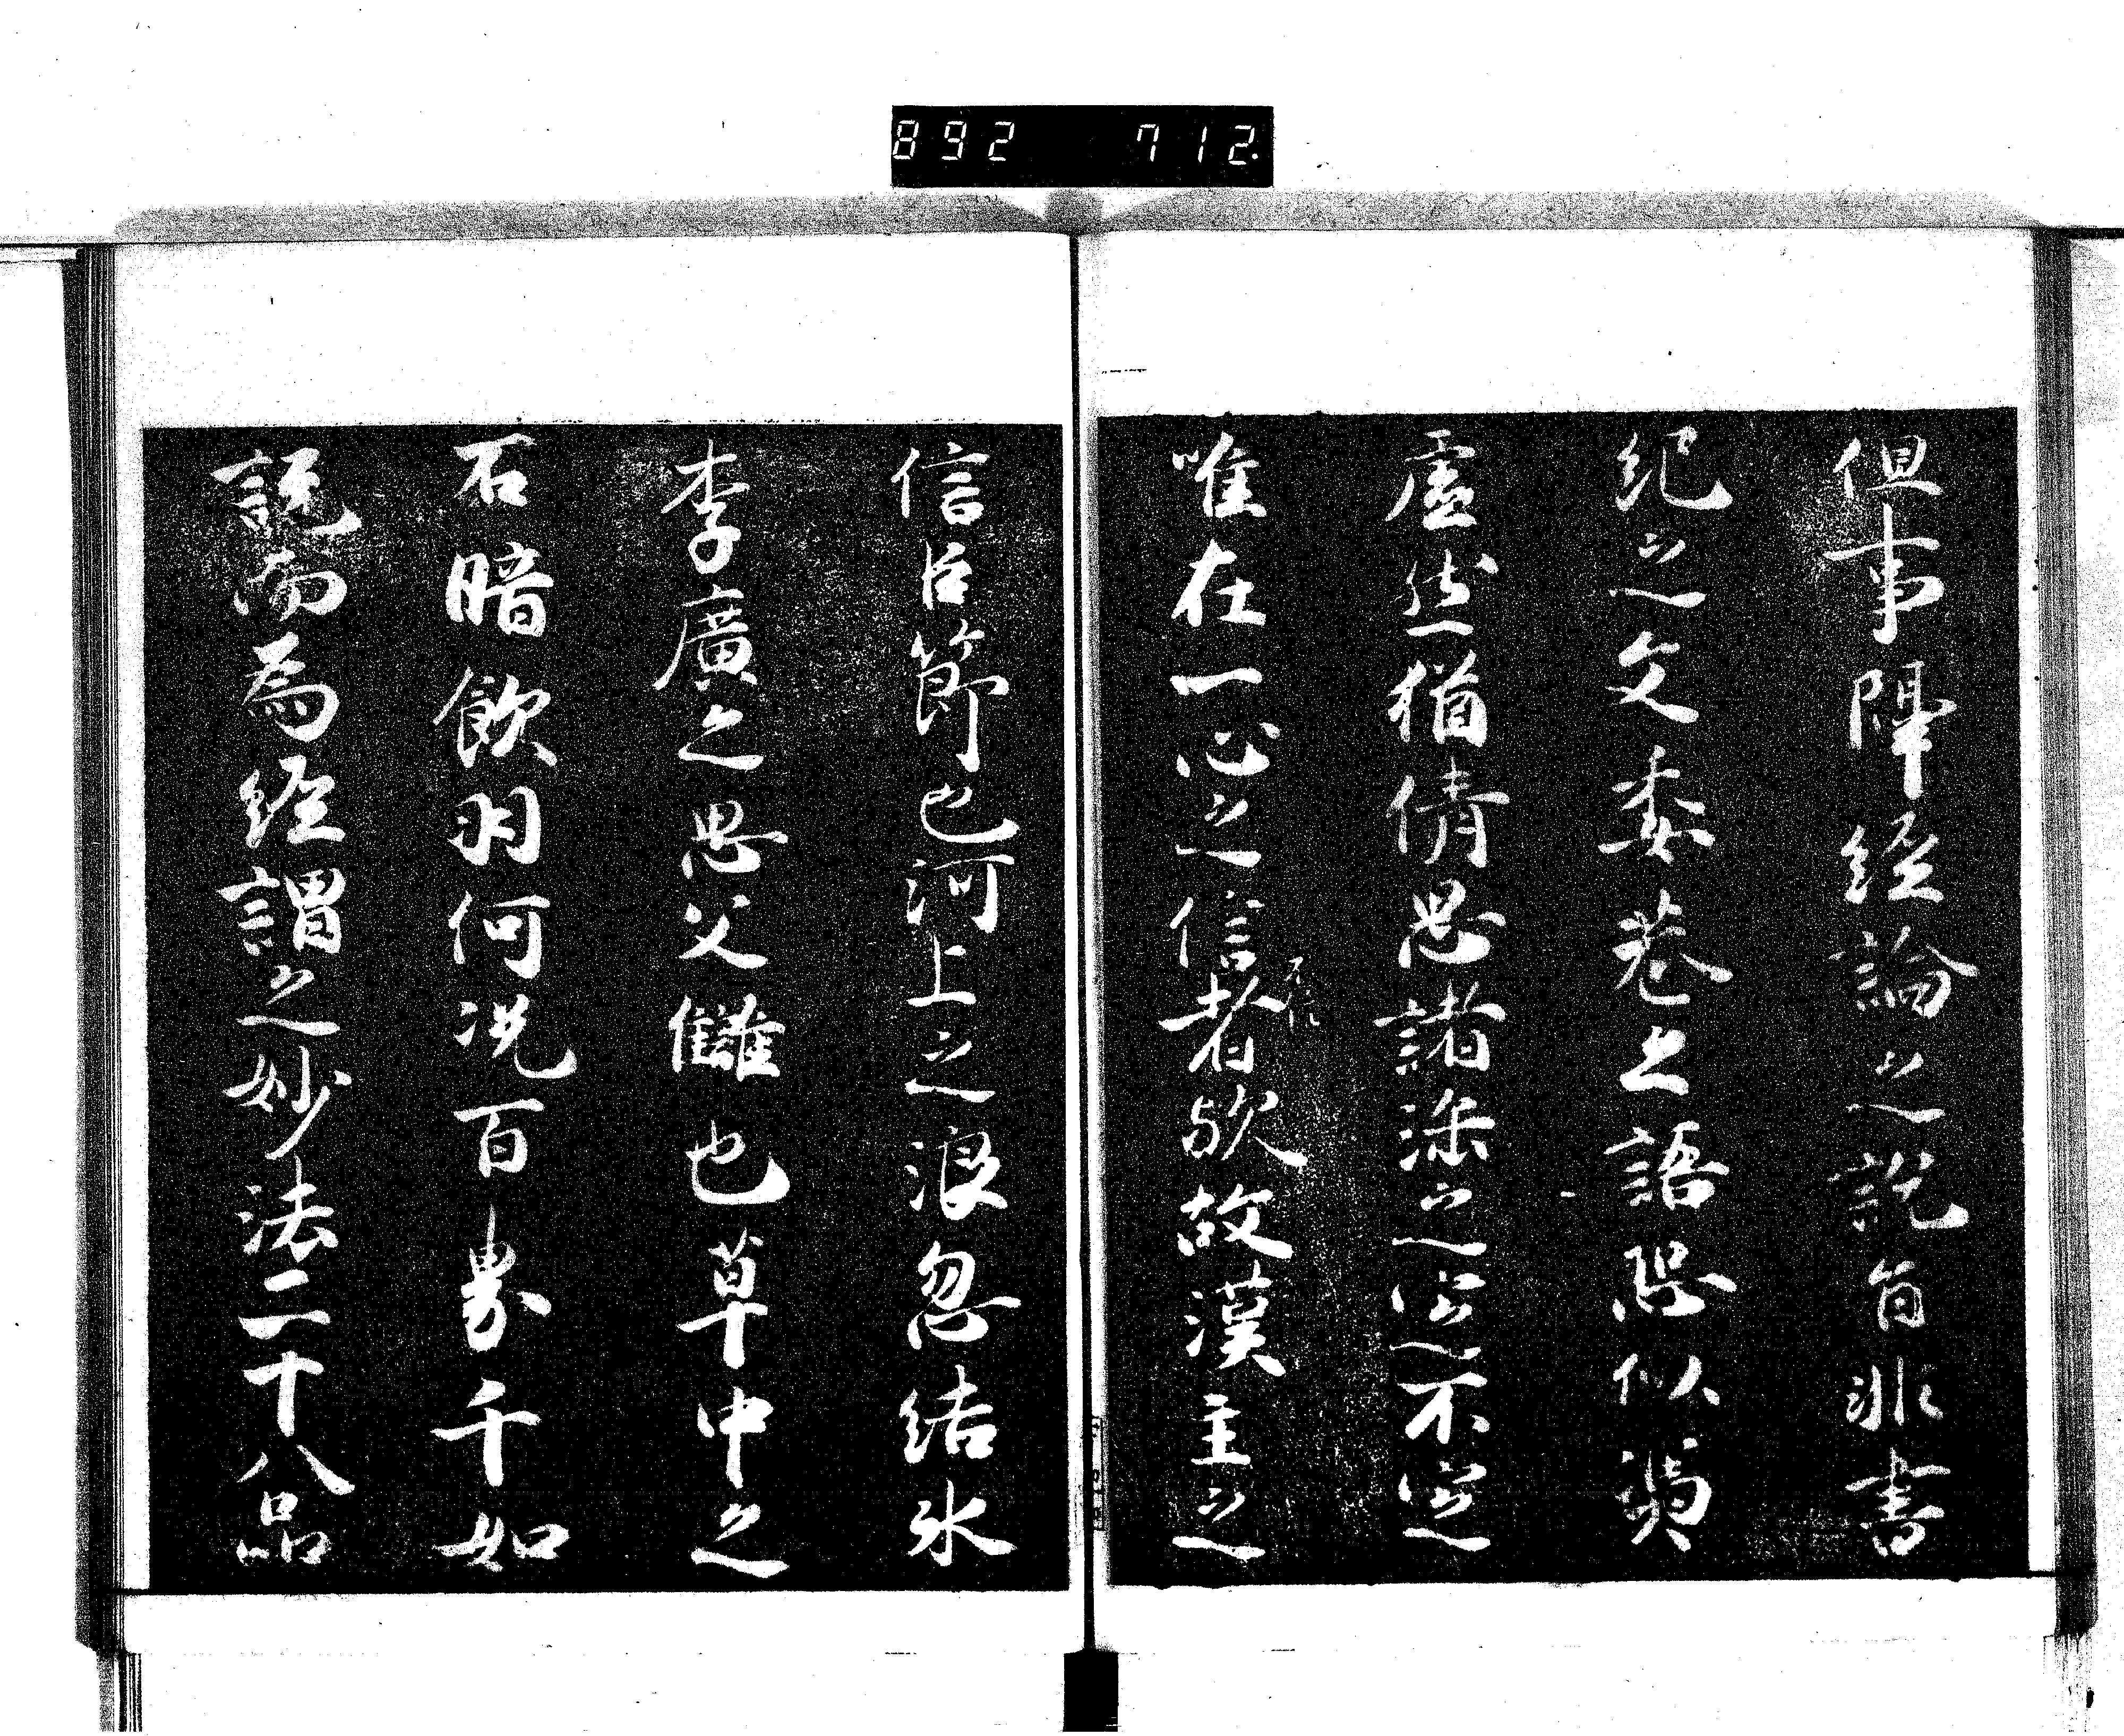 892 712
但事經論之説旨非書
紀之文委巷之語恐似憑
虛然猶倩思諸深之定不定
唯在一心之信者歟故漢主之
不信
信臣節也河上之浪忽結氷
李廣之思父讎也草中之
石暗飲羽何況百界千如
説而為經謂之妙法二十八品